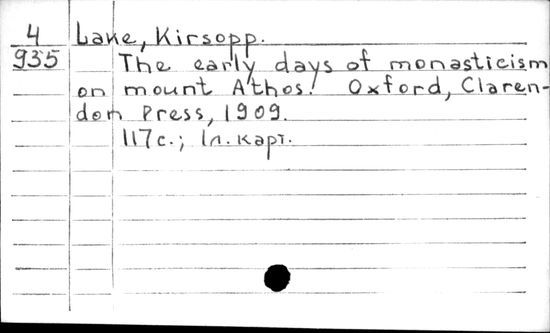 4 Lake, Kirsopp.
935 The early days of monasticism
on mount Athos. Oxford, Claren-
don Press, 1909.
117с.; 1л. карт.